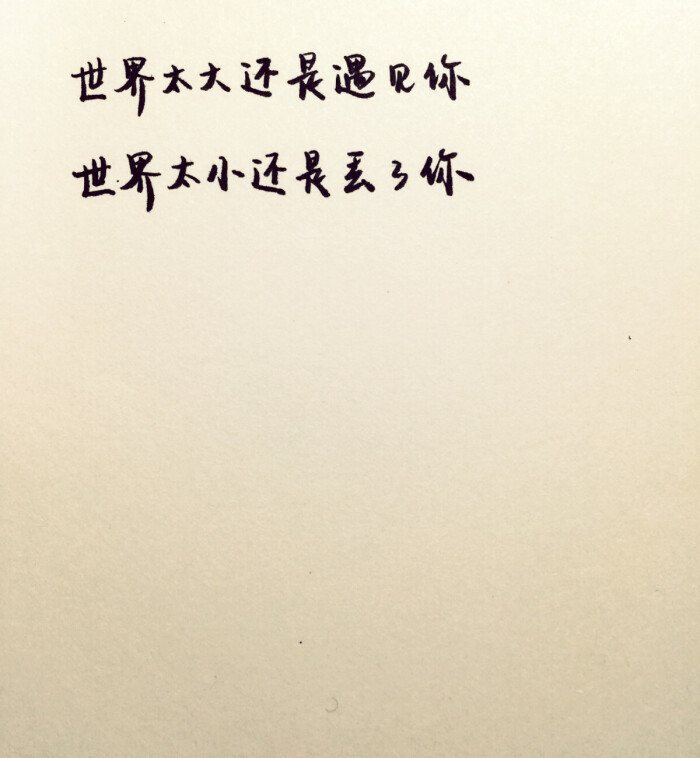 世界太大还是遇见你
世界太小还是丢了你